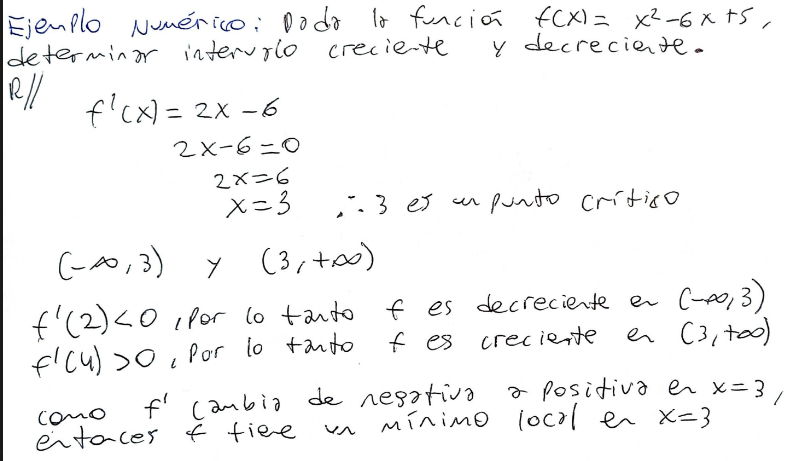 Ejemplo Numérico: Dada la función f(x) = x²-6x+5,
determinar intervalo creciente y decreciente.
R//
f'(x) = 2x - 6
2x-6=0
2x=6
x=3 ∴ 3 es un punto crítico
(-∞,3) y (3,+∞)
f'(2)<0, Por lo tanto f es decreciente en (-∞,3)
f'(4)>0, Por lo tanto f es creciente en (3,+∞)
como f' cambia de negativa a positiva en x=3,
entonces f tiene un mínimo local en x=3